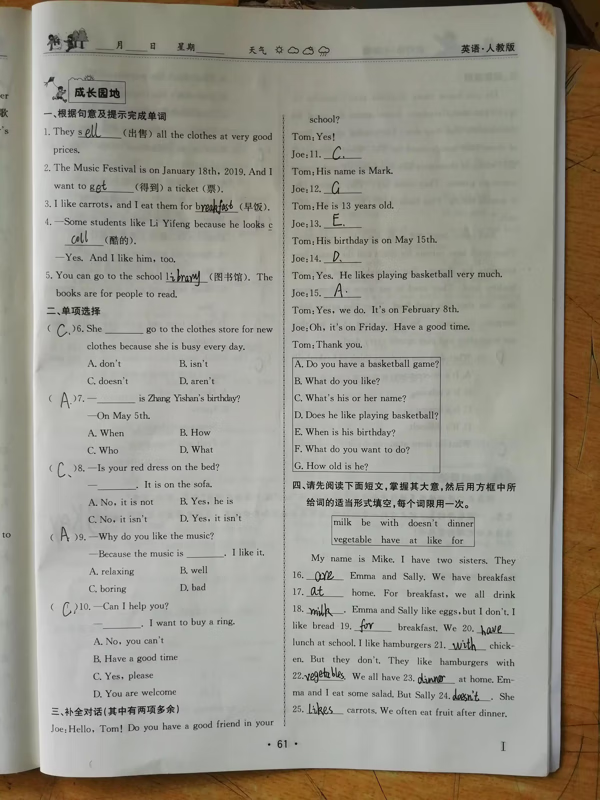 月 日 星期 天气 英语·人教版
成长园地
一、根据句意及提示完成单词
1. They sell (出售) all the clothes at very good
prices.
2. The Music Festival is on January 18th, 2019. And I
want to get (得到) a ticket (票).
3. I like carrots, and I eat them for breakfast (早饭).
4. —Some students like Li Yifeng because he looks c
coll (酷的).
—Yes. And I like him, too.
5. You can go to the school library (图书馆). The
books are for people to read.
二、单项选择
( C. )6. She ________ go to the clothes store for new
clothes because she is busy every day.
A. don't B. isn't
C. doesn't D. aren't
( A. )7. —________ is Zhang Yishan's birthday?
—On May 5th.
A. When B. How
C. Who D. What
( C. )8. —Is your red dress on the bed?
—________. It is on the sofa.
A. No, it is not B. Yes, he is
C. No, it isn't D. Yes, it isn't
( A. )9. —Why do you like the music?
—Because the music is ________. I like it.
A. relaxing B. well
C. boring D. bad
( C. )10. —Can I help you?
—________. I want to buy a ring.
A. No, you can't
B. Have a good time
C. Yes, please
D. You are welcome
三、补全对话(其中有两项多余)
Joe: Hello, Tom! Do you have a good friend in your
school?
Tom: Yes!
Joe: 11. C.
Tom: His name is Mark.
Joe: 12. G
Tom: He is 13 years old.
Joe: 13. E.
Tom: His birthday is on May 15th.
Joe: 14. D.
Tom: Yes. He likes playing basketball very much.
Joe: 15. A.
Tom: Yes, we do. It's on February 8th.
Joe: Oh, it's on Friday. Have a good time.
Tom: Thank you.
A. Do you have a basketball game?
B. What do you like?
C. What's his or her name?
D. Does he like playing basketball?
E. When is his birthday?
F. What do you want to do?
G. How old is he?
四、请先阅读下面短文,掌握其大意,然后用方框中所
给词的适当形式填空,每个词限用一次。
milk be with doesn't dinner
vegetable have at like for
My name is Mike. I have two sisters. They
16. are Emma and Sally. We have breakfast
17. at home. For breakfast, we all drink
18. milk. Emma and Sally like eggs, but I don't. I
like bread 19. for breakfast. We 20. have
lunch at school. I like hamburgers 21. with chick-
en. But they don't. They like hamburgers with
22. vegetables. We all have 23. dinner at home. Em-
ma and I eat some salad. But Sally 24. doesn't. She
25. likes carrots. We often eat fruit after dinner.
· 61 ·
I